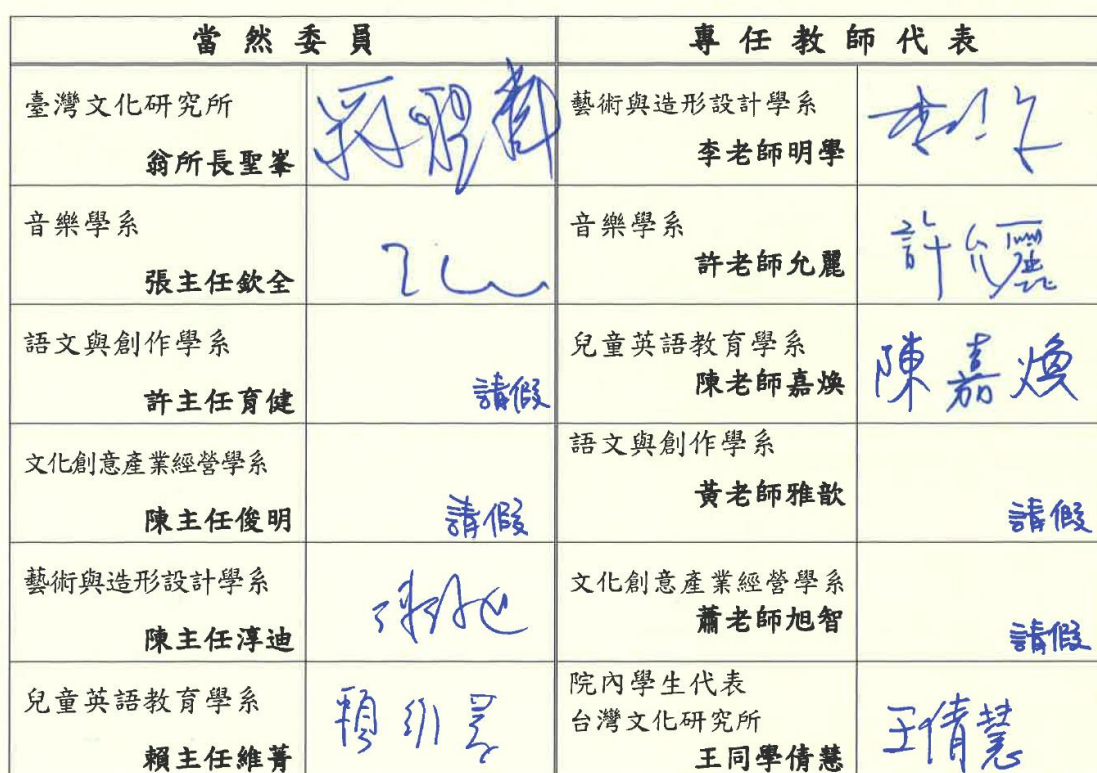 當然委員
專任教師代表
臺灣文化研究所
翁所長聖峯
藝術與造形設計學系
李老師明學
音樂學系
張主任欽全
音樂學系
許老師允麗
許允麗
語文與創作學系
許主任育健
請假
兒童英語教育學系
陳老師嘉煥
陳嘉煥
文化創意產業經營學系
陳主任俊明
請假
語文與創作學系
黃老師雅歆
請假
藝術與造形設計學系
陳主任淳迪
文化創意產業經營學系
蕭老師旭智
請假
兒童英語教育學系
賴主任維菁
院內學生代表
台灣文化研究所
王同學倩慧
王倩慧